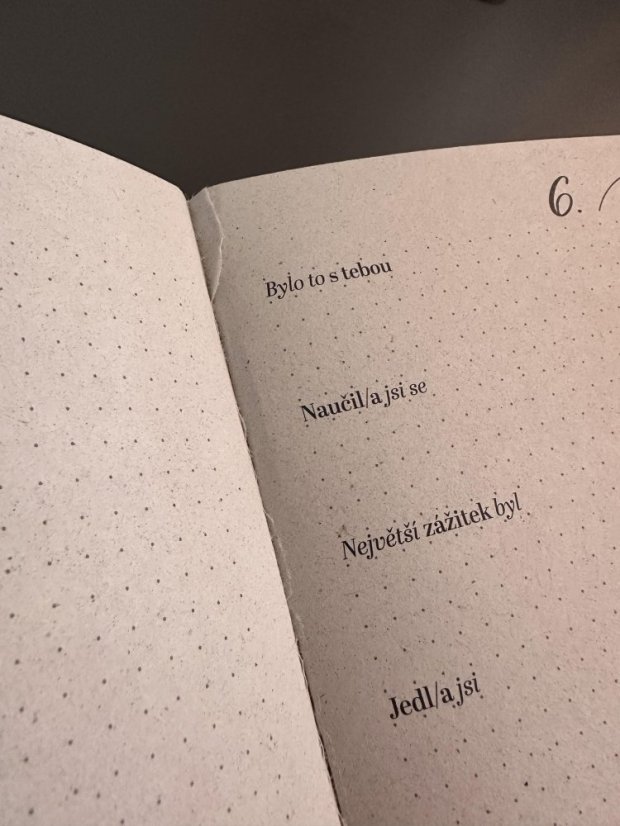 6.
Bylo to s tebou
Naučil/a jsi se
Největší zážitek byl
Jedl/a jsi